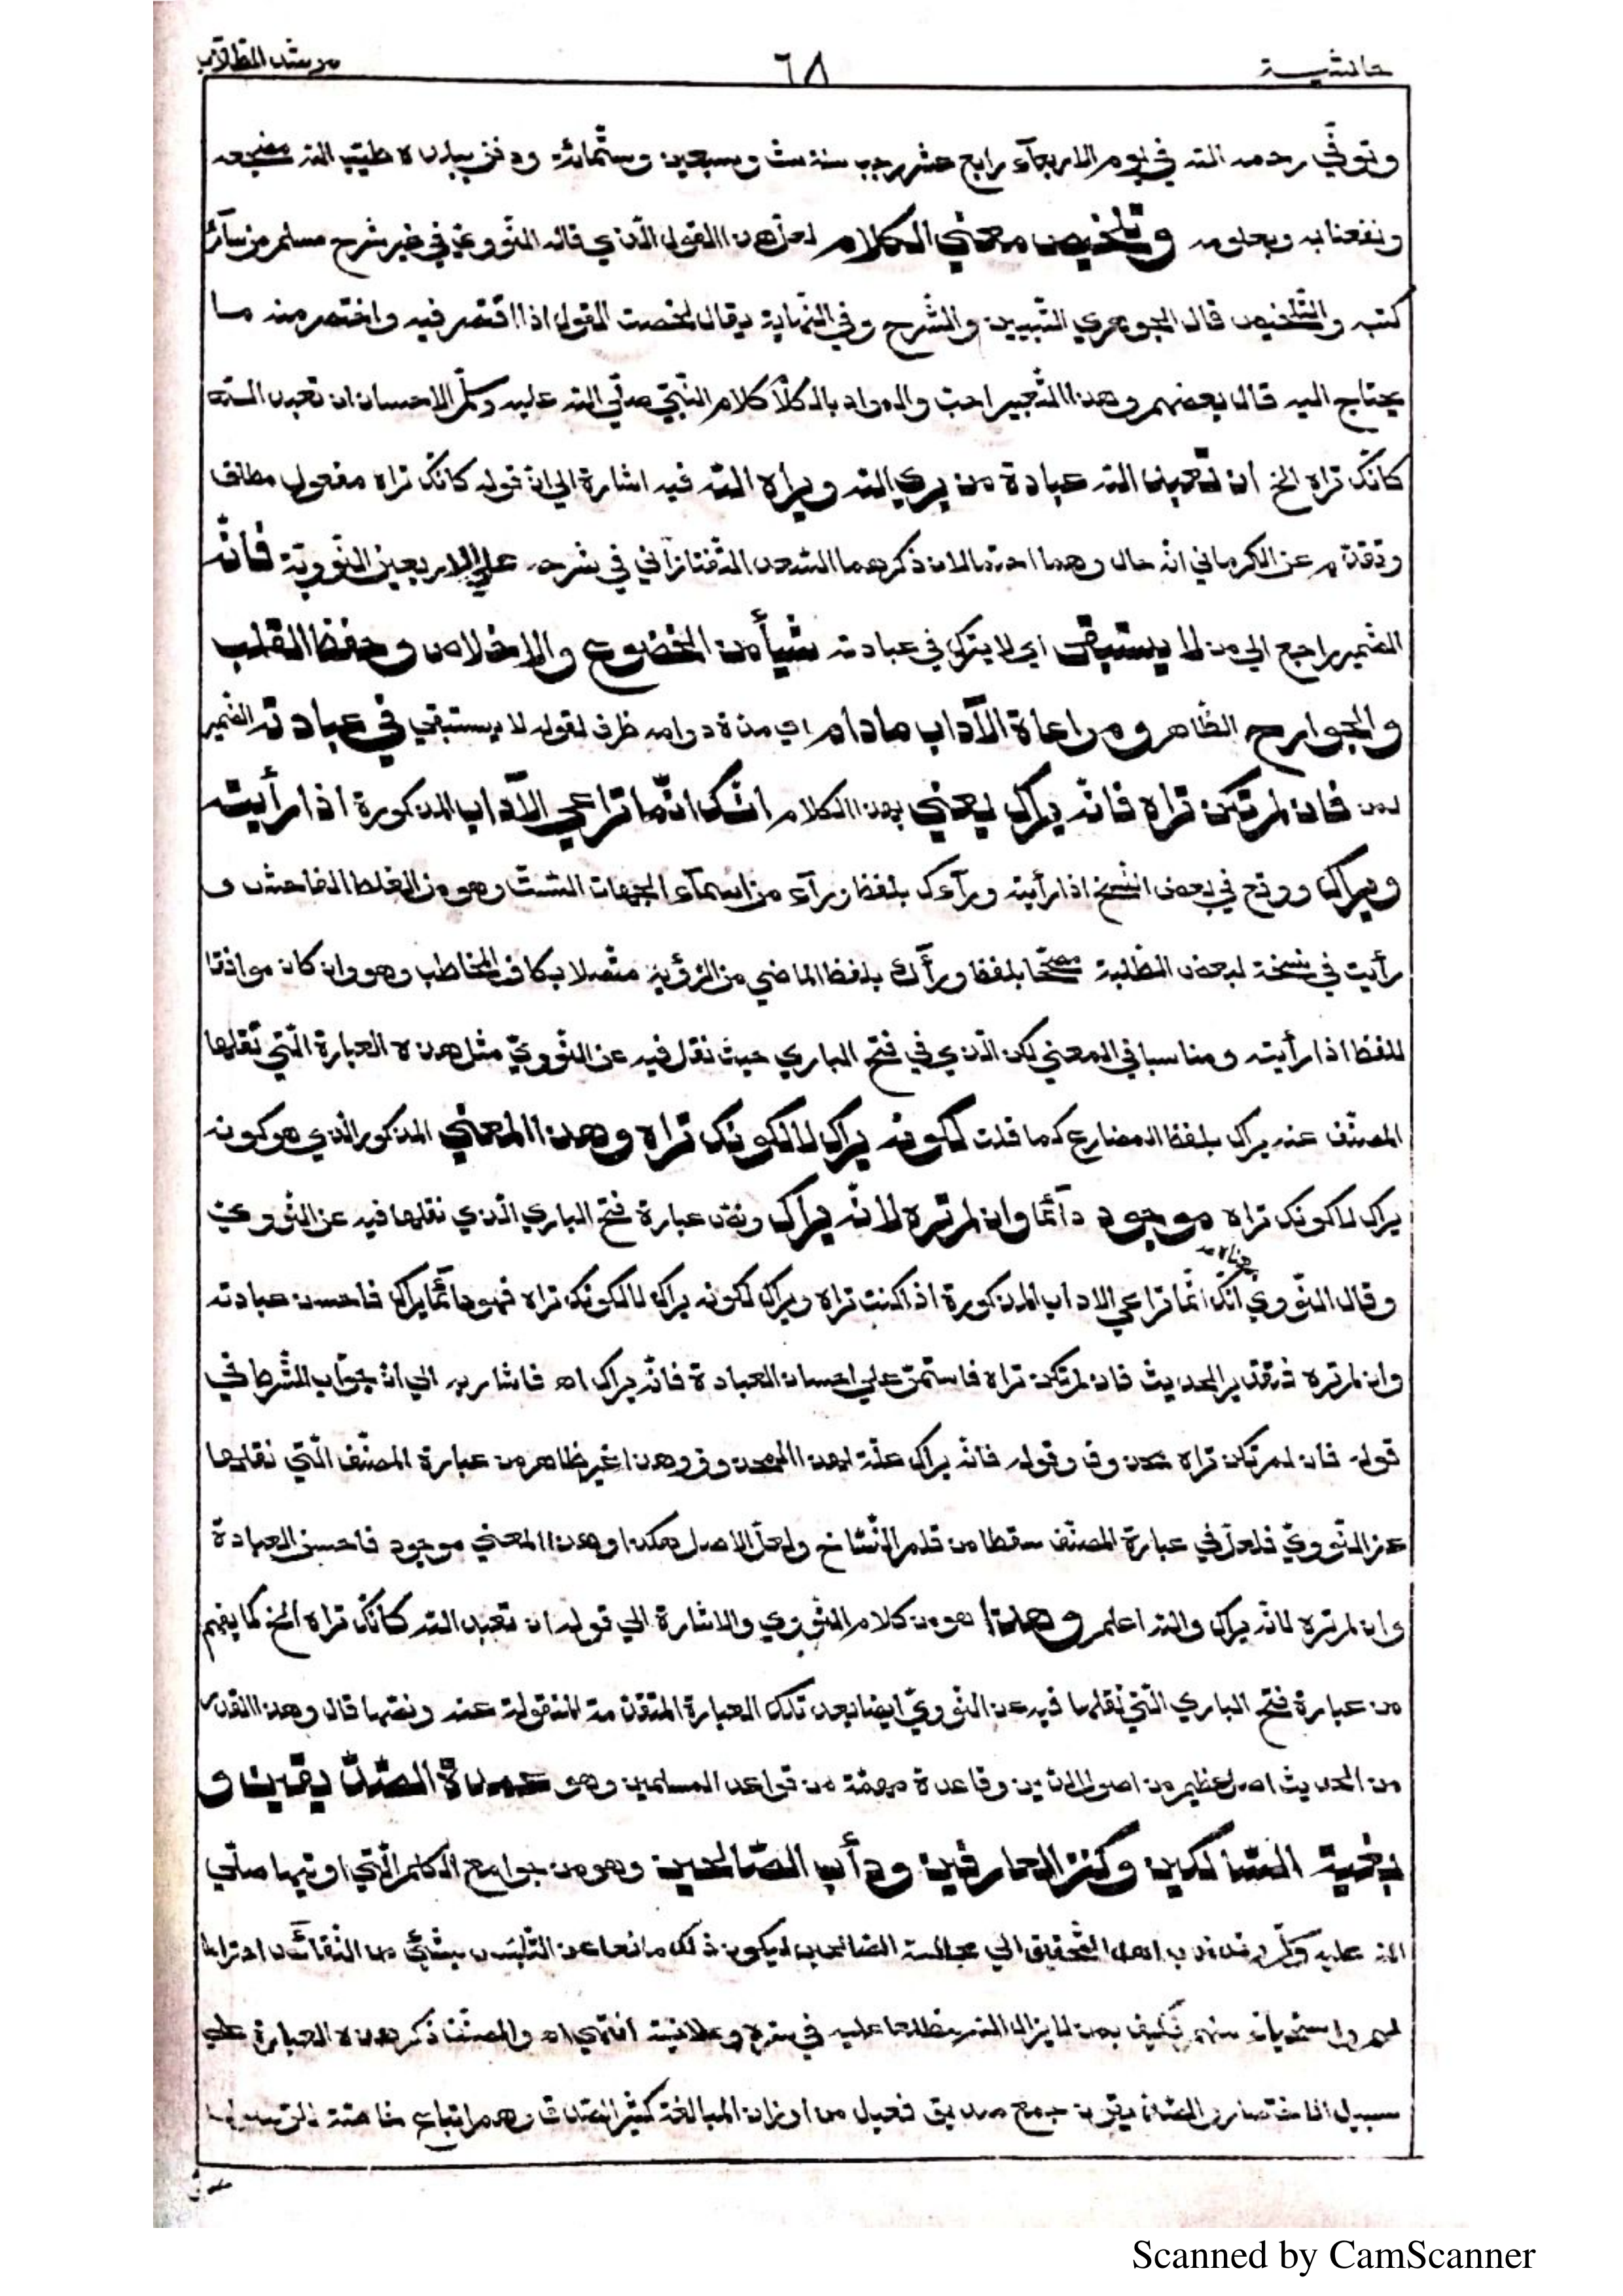 حاشية ٦٨ مرشد الطلاب
وتوفّي رحمه الله في يوم الاربعآء رابع عشر رجب سنة ست وسبعين وستّمائة ودفن ببلده طيّب الله مضجعه
ونفعنا به وبعلومه وتلخيص معني الكلام لعلّ هذا القول الّذي قاله النّووي في غير شرح مسلم من سآئر
كتبه والتّلخيص قال الجوهري التّبيين والشّرح وفي النّهاية يقال لخصت القول اذا اقتصر فيه واختصر منه ما
يحتاج اليه قال بعضهم وهذا التّعبير احب والمراد بالكلام كلام النّبيّ صلّي الله عليه وسلّم الاحسان ان تعبد الله
كانّك تراه الخ ان تعبد الله عبادة من يري الله ويراه الله فيه اشارة الي انّ قوله كانّك تراه مفعول مطلق
وتقدّم عن الكرماني انّه حال وهما احتمالان ذكرهما السّعد التّفتازاني في شرحه علي الاربعين النّوويّة فانّه
الضّمير راجع الي من لا يستبقي اي لا يترك في عبادته شيأ من الخضوع والاخلاص وحفظ القلب
والجوارح الظّاهر ومراعاة الآداب مادام اي مدّة دوامه ظرف لقوله لا يستبقي في عبادته الضّمير
لمن فان لم تكن تراه فانّه يراك يعني بهذا الكلام انّك انّما تراعي الآداب المذكورة اذا رأيته
ويراك ووقع في بعض النّسخ اذا رأيته ورآءك بلفظ ورآء من اسمآء الجهات السّتّ وهو من الغلط الفاحش و
رأيت في نسخة لبعض الطّلبة مصحّحا بلفظ ورأك بلفظ الماضي من الرّؤية متّصلا بكاف المخاطب وهو وان كان موافقا
للفظ اذا رأيته ومناسبا في المعني لكن الّذي في فتح الباري حيث نقل فيه عن النّوويّ مثل هذه العبارة الّتي نقلها
المصنّف عنه يراك بلفظ المضارع كما قلت لكونه يراك لا لكونك تراه وهذا المعني المذكور الّذي هو كونه
يراك لا كونك تراه موجود دآئما وان لم تره لانّه يراك ونصّ عبارة فتح الباري الّذي نقلها فيه عن النّووي
وقال النّووي انّك انّما تراعي الاداب المذكورة اذا كنت تراه ويراك لكونه يراك لا لكونك تراه فهو دآئما يراك فاحسن عبادته
وان لم تره فتقدير الحديث فان لم تكن تراه فاستمرّ علي احسان العبادة فانّه يراك اه فاشار به الي انّ جواب الشّرط في
قوله فان لم تكن تراه محذوف وقوله فانّه يراك علّة لهذا المحذوف وهذا غير ظاهر من عبارة المصنّف الّتي نقلها
عن النّوويّ فلعلّ في عبارة المصنّف سقطا من قلم النّسّاخ ولعلّ الاصل هكذا وهذا المعني موجود فاحسن العبادة
وان لم تره لانّه يراك والله اعلم وهذا هو من كلام النّووي والاشارة الي قوله ان تعبد الله كانّك تراه الخ كما يفهم
من عبارة فتح الباري الّتي نقلها فيه عن النّوويّ ايضا بعد تلك العبارة المتقدّمة المنقولة عنه ونصّها قال وهذا القدر
من الحديث اصل عظيم من اصول الدّين وقاعدة مهمّة من قواعد المسلمين وهو عمدة الصّدّيقين و
بغية السّالكين وكنز العارفين ودأب الصّالحين وهو من جوامع الكلم الّتي اوتيها صلّي
الله عليه وسلّم وقد ندب اهل التّحقيق الي مجالسة الصّالحين ليكون ذلك مانعا عن التّلبّس بشئي من النّقآئص احتراما
لهم واستحيآء منهم فكيف بمن لا يزال الله مطّلعا عليه في سرّه وعلانيته انتهي اه والمصنّف ذكر هذه العبارة علي
سبيل الاختصار والصّدّيقين جمع صدّيق فعيل من اوزان المبالغة كثير الصّدق وهم اتباع خاصّة